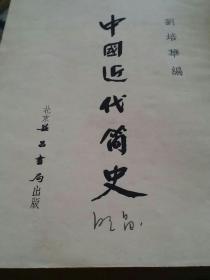 劉培華編
中國近代简史
北京益昌書局出版